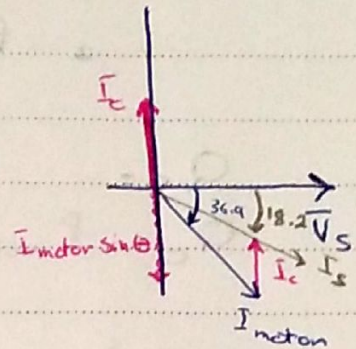 I̅c
36.9
18.2
V̅s
I̅motor sinθ
I̅c
I̅s
I̅motor